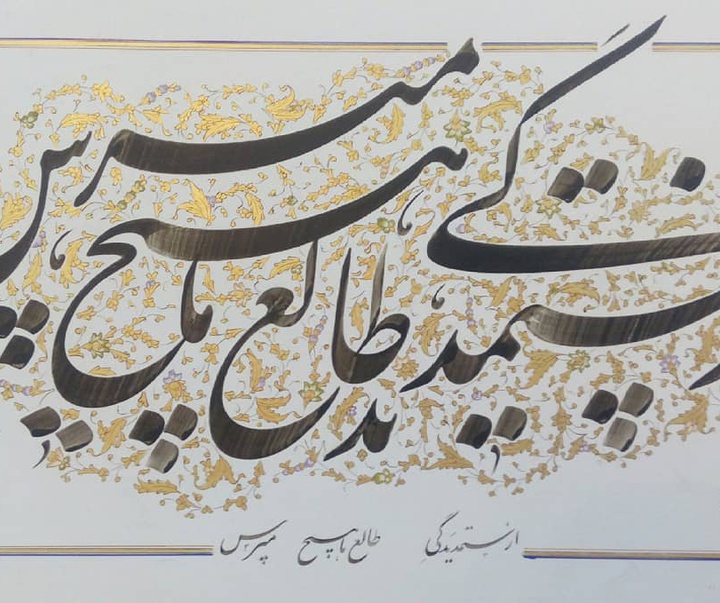 ز ستمدیدگی طالع ما هیچ مپرس
از ستمدیدگی طالع ما هیچ مپرس